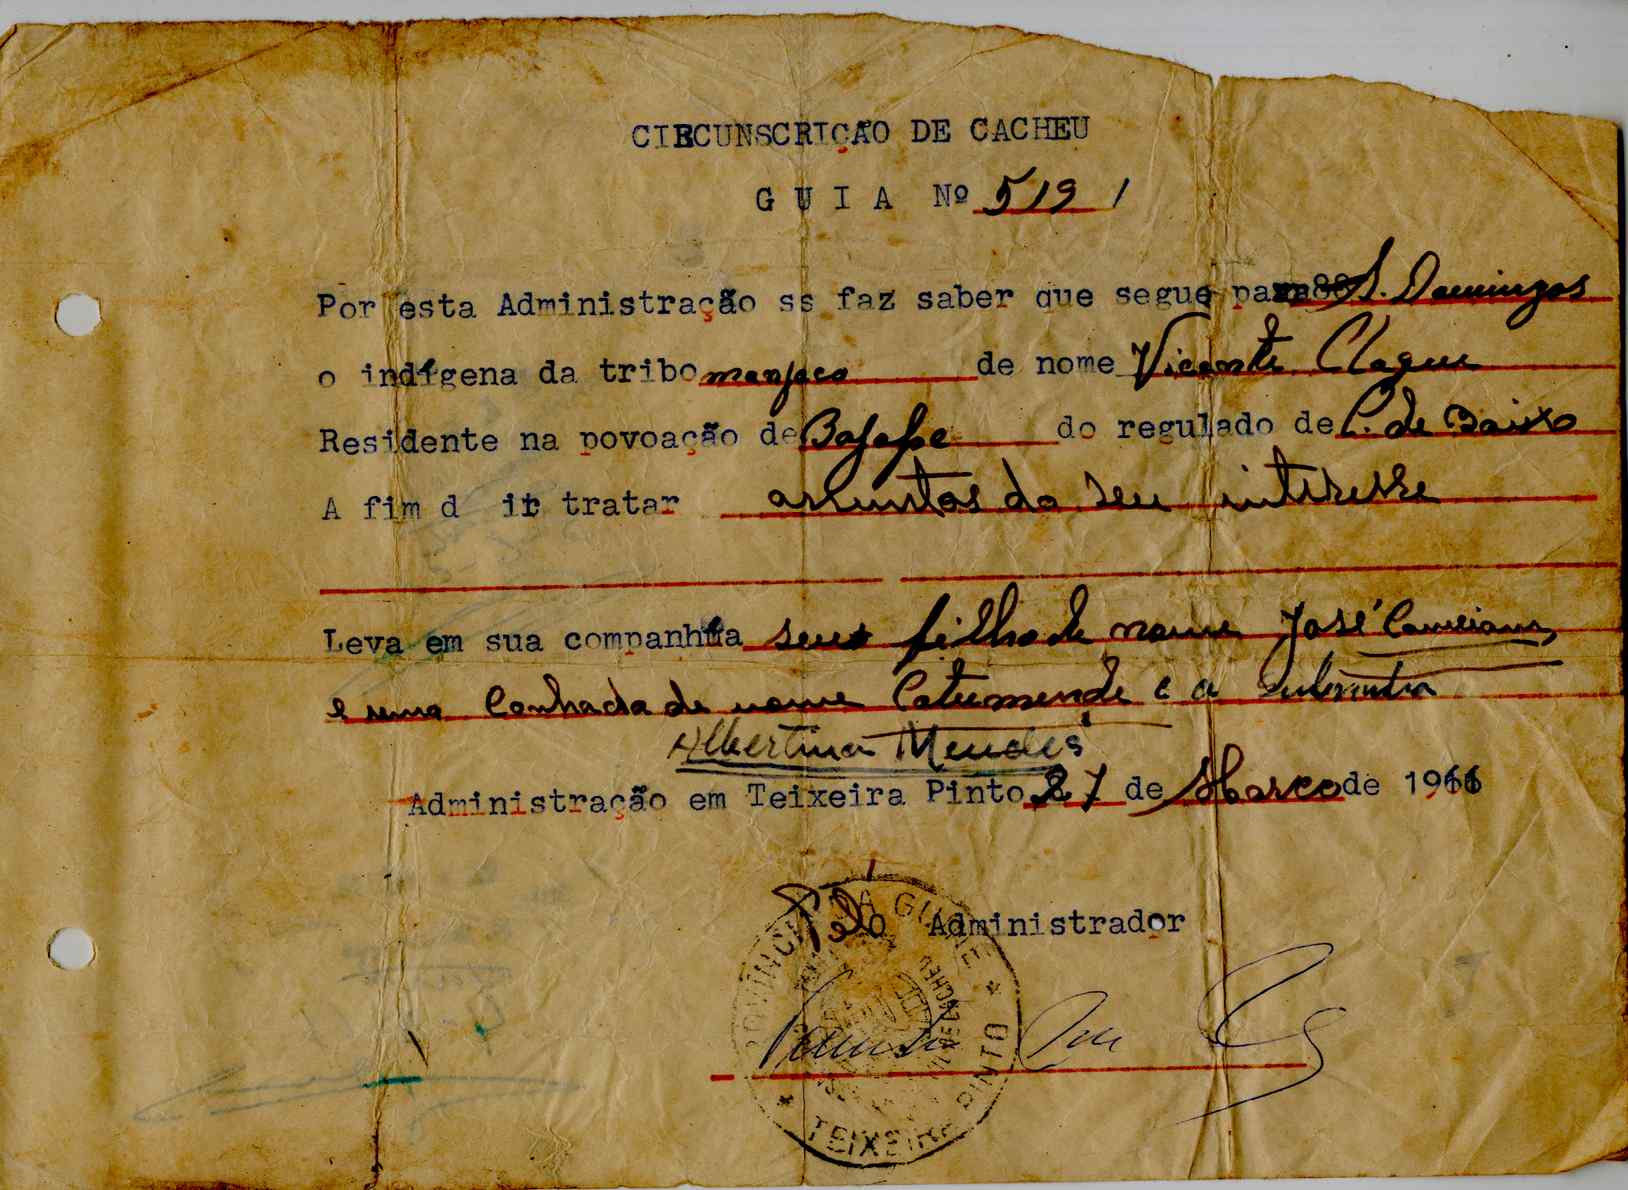 CIRCUNSCRIÇÃO DE CACHEU
G U I A Nº 519 /
Por esta Administração ss faz saber que segue para S. Domingos
o indígena da tribo manjaco de nome Vicente Clague
Residente na povoação de Bajope do regulado de C. de Baixo
A fim d ir tratar assuntos do seu interesse
Leva em sua companhia seu filho de nome José
e uma Cunhada de nome e a
Albertina Mendes
Administração em Teixeira Pinto 27 de Março de 1966
Pelo Administrador
PROVINCIA DA GUINE * TEIXEIRA PINTO *